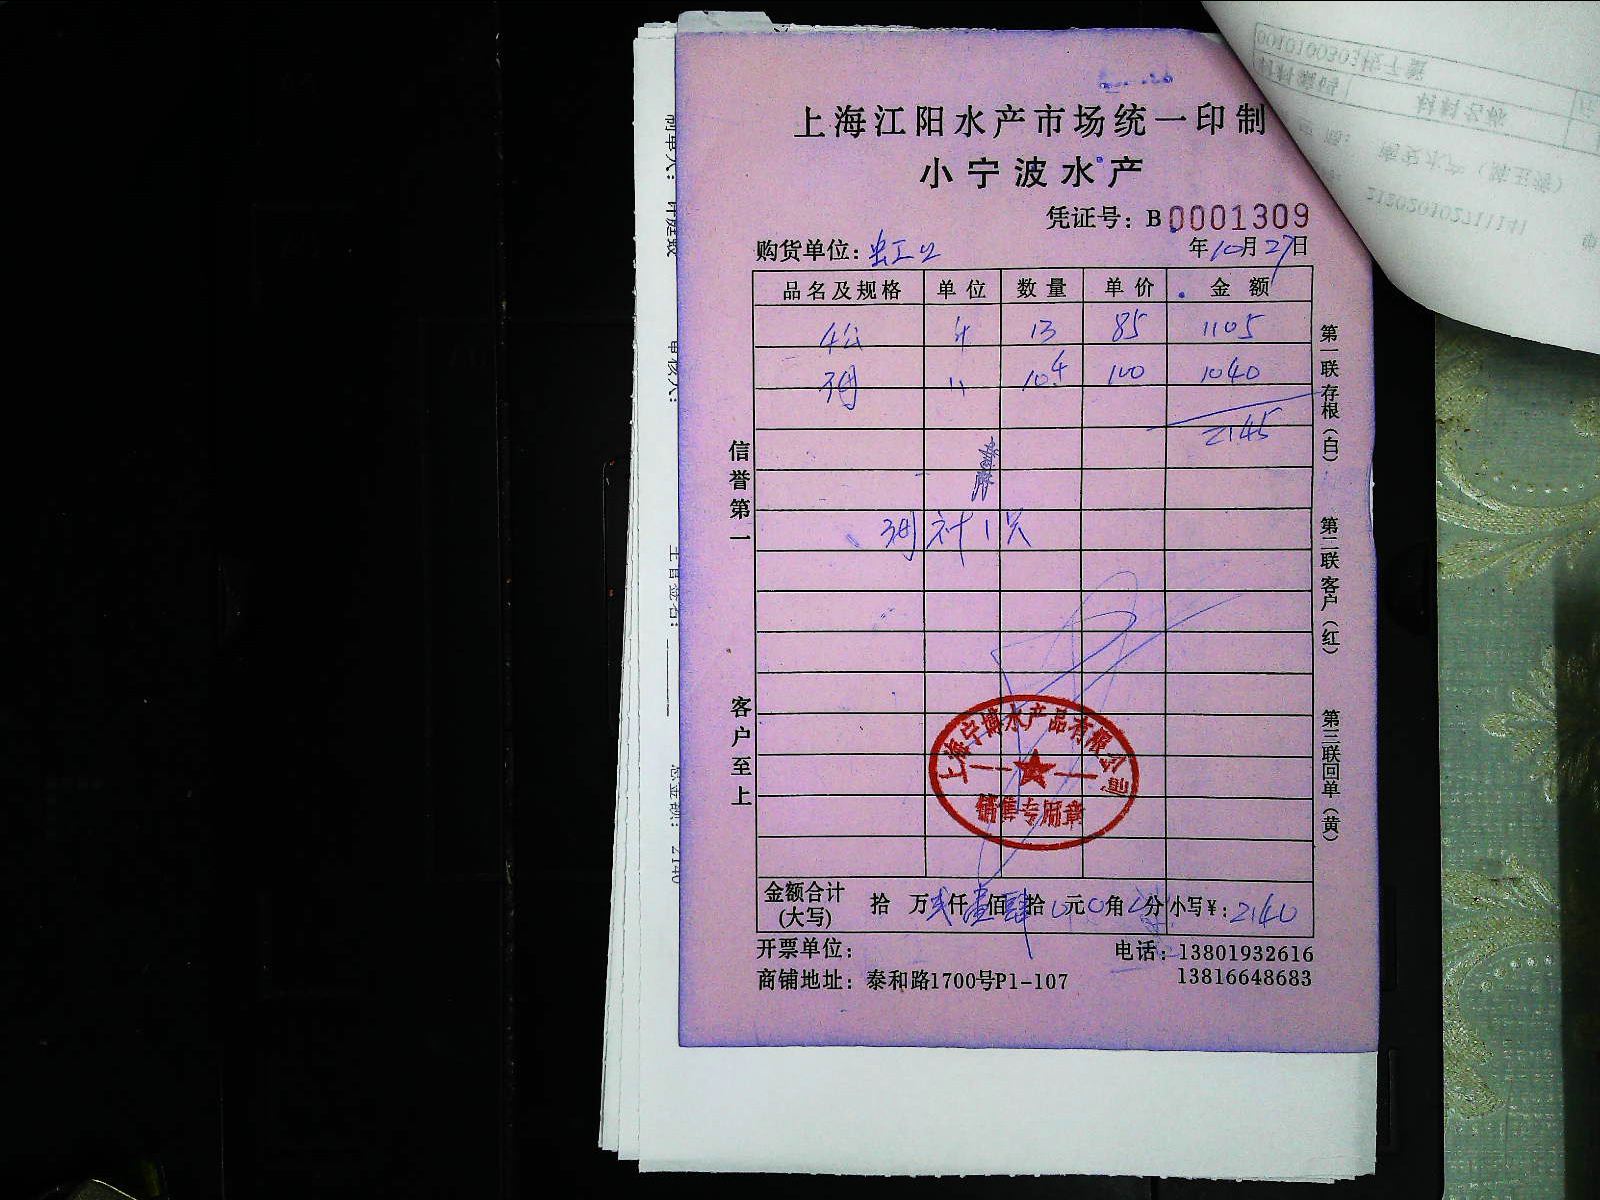 上海江阳水产市场统一印制
小宁波水产
凭证号：B0001309
购货单位：虹
年10月27日
品名及规格 单位 数量 单价 金额
4公 斤 13 85 1105
" 10.4 100 1040
2145
补1只
信誉第一
客户至上
第一联存根（白）
第二联客户（红）
第三联回单（黄）
上海宁博水产品有限公司
销售专用章
金额合计(大写) 拾 万 贰仟 壹佰 肆拾 0元 0角 分 小写¥：2140
开票单位：
电话：13801932616
商铺地址：泰和路1700号P1-107
13816648683
制单人：
审核人：
主管签名：
总金额：2140